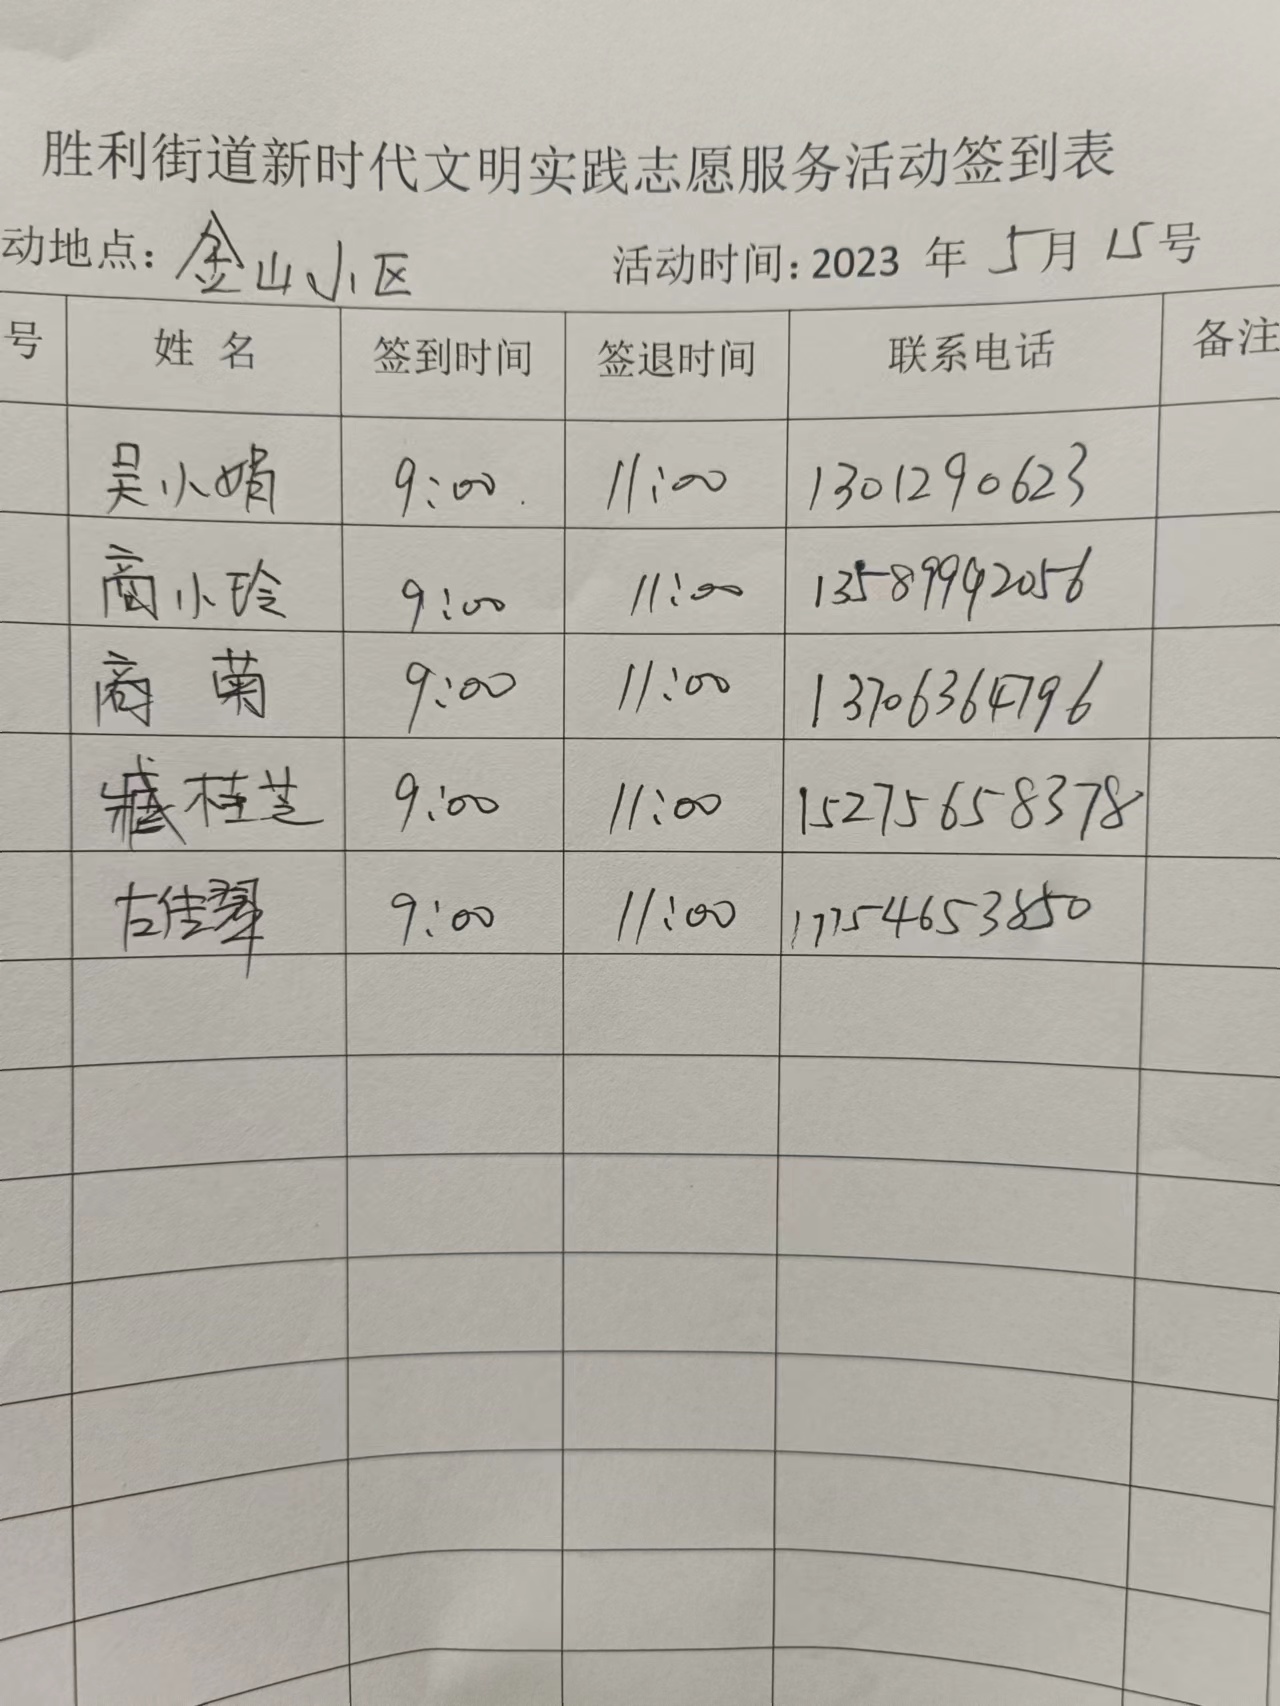 胜利街道新时代文明实践志愿服务活动签到表
动地点：金山小区 活动时间：2023 年 5月 15号
号 姓 名 签到时间 签退时间 联系电话 备注
吴小娟 9:00 11:00 1301290623
商小玲 9:00 11:00 13589942056
商 菊 9:00 11:00 13706364796
臧桂芝 9:00 11:00 15275658378
古佳翠 9:00 11:00 17754653850